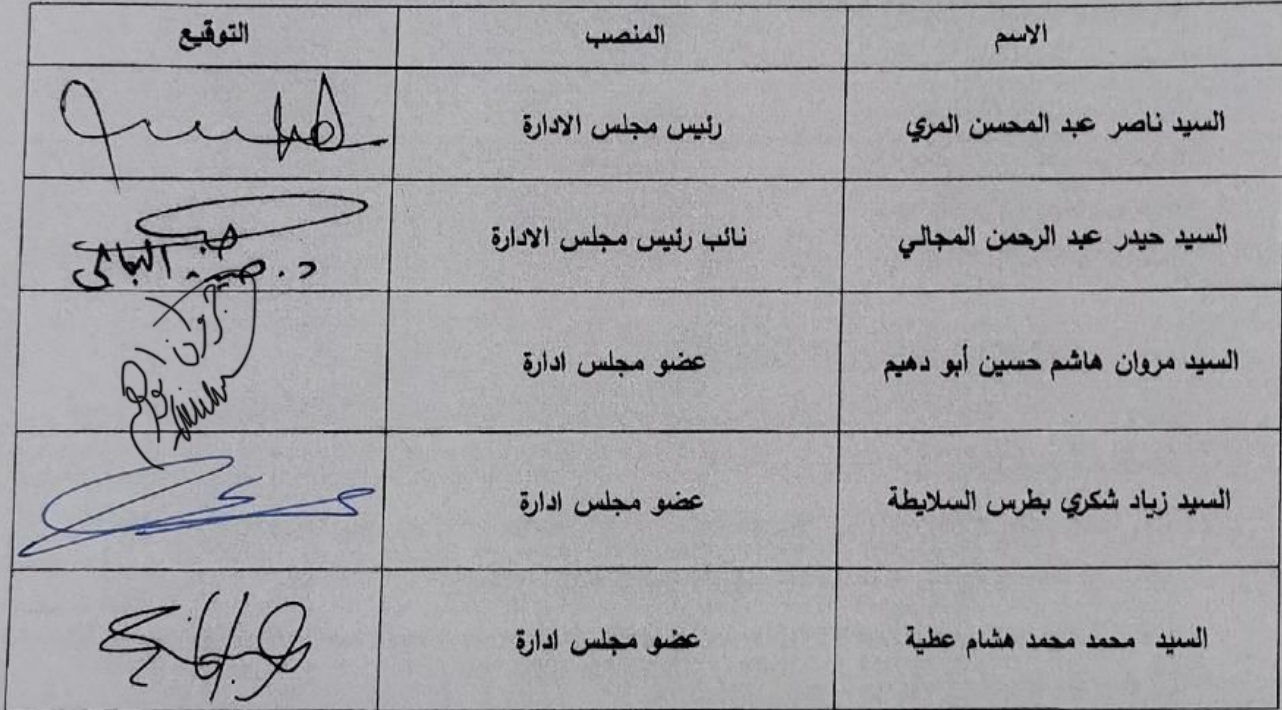 الاسم المنصب التوقيع
السيد ناصر عبد المحسن المري رئيس مجلس الادارة
السيد حيدر عبد الرحمن المجالي نائب رئيس مجلس الادارة
السيد مروان هاشم حسين أبو دهيم عضو مجلس ادارة
السيد زياد شكري بطرس السلايطة عضو مجلس ادارة
السيد محمد محمد هشام عطية عضو مجلس ادارة